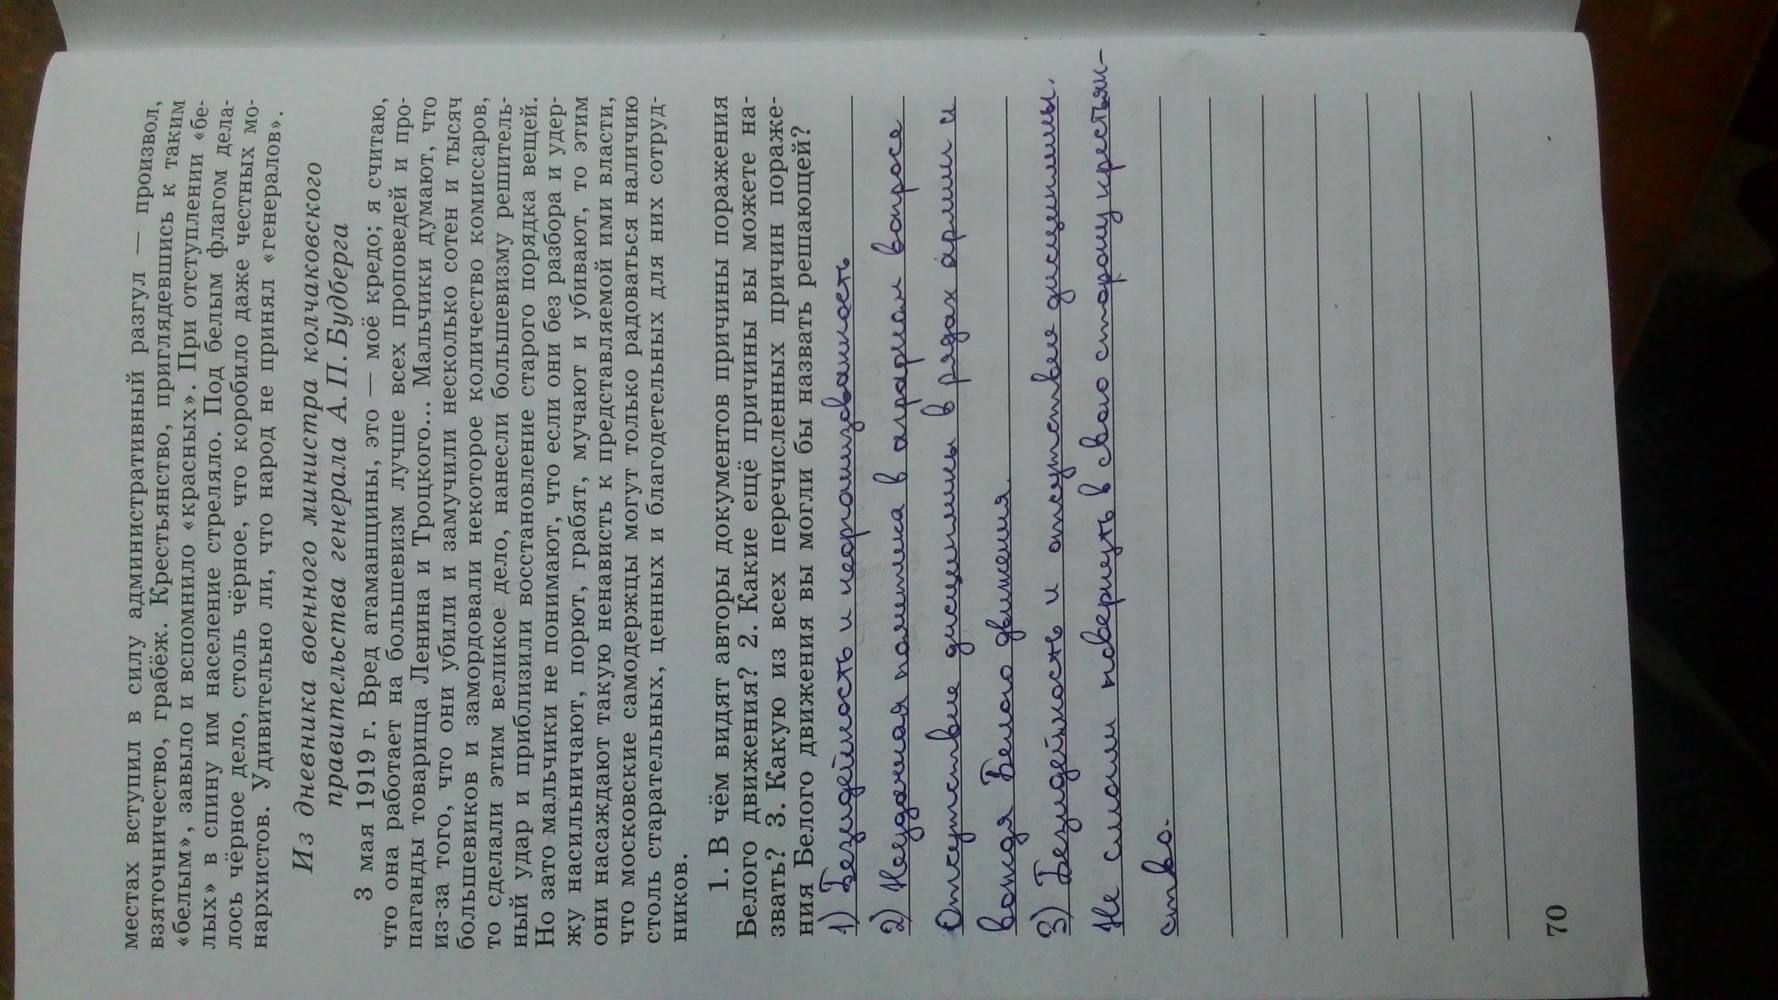 местах вступил в силу административный разгул — произвол,
взяточничество, грабёж. Крестьянство, приглядевшись к таким
«белым», завыло и вспомнило «красных». При отступлении «бе-
лых» в спину им население стреляло. Под белым флагом дела-
лось чёрное дело, столь чёрное, что коробило даже честных мо-
нархистов. Удивительно ли, что народ не принял «генералов».
Из дневника военного министра колчаковского
правительства генерала А. П. Будберга
3 мая 1919 г. Вред атаманщины, это — моё кредо; я считаю,
что она работает на большевизм лучше всех проповедей и про-
паганды товарища Ленина и Троцкого... Мальчики думают, что
из-за того, что они убили и замучили несколько сотен и тысяч
большевиков и замордовали некоторое количество комиссаров,
то сделали этим великое дело, нанесли большевизму решитель-
ный удар и приблизили восстановление старого порядка вещей.
Но зато мальчики не понимают, что если они без разбора и удер-
жу насильничают, порют, грабят, мучают и убивают, то этим
они насаждают такую ненависть к представляемой ими власти,
что московские самодержцы могут только радоваться наличию
столь старательных, ценных и благодетельных для них сотруд-
ников.
1. В чём видят авторы документов причины поражения
Белого движения? 2. Какие ещё причины вы можете на-
звать? 3. Какую из всех перечисленных причин пораже-
ния Белого движения вы могли бы назвать решающей?
1) Безидейность и неорганизованность
2) Неудачная политика в аграрном вопросе
Отсутствие дисциплины в рядах армии и
вождя Белого движения
3) Безидейность и отсутствие дисциплины.
Не смогли повернуть в свою сторону крестьян-
ство.
70